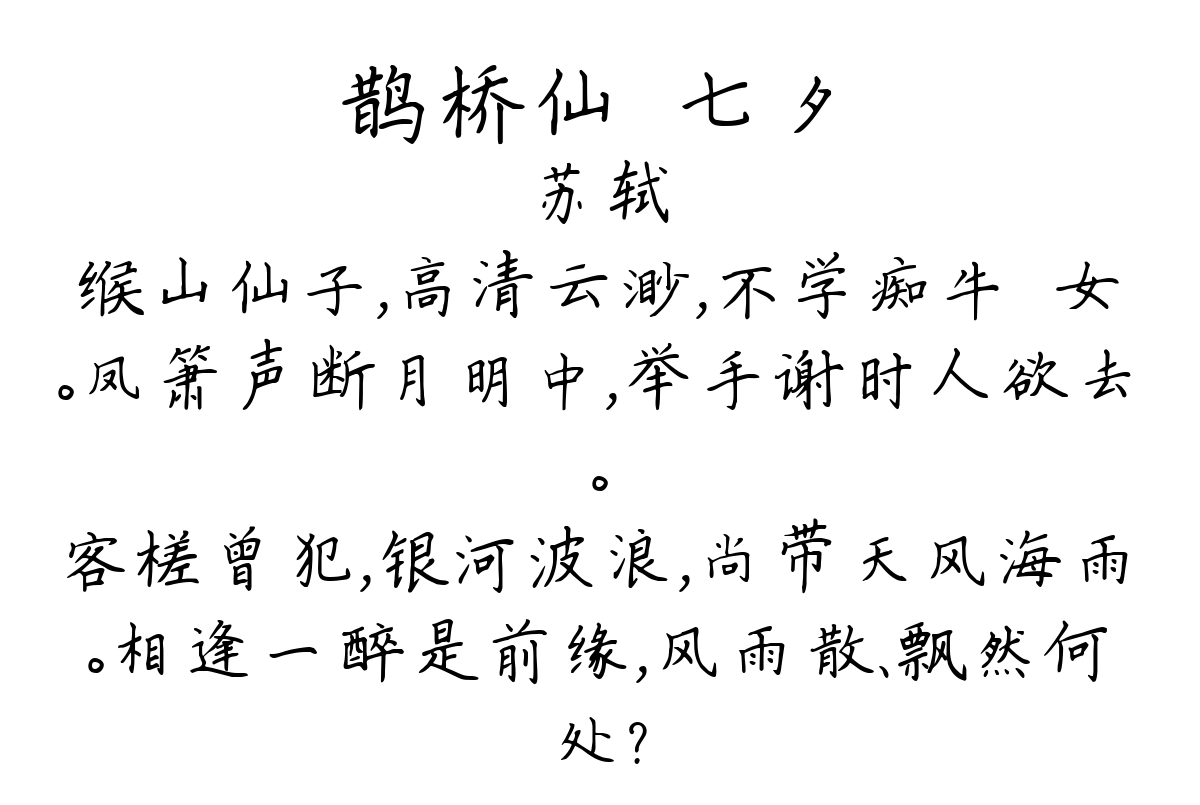 鹊桥仙 七夕
苏轼
缑山仙子,高清云渺,不学痴牛 女
。凤箫声断月明中,举手谢时人欲去
。
客槎曾犯,银河波浪,尚带天风海雨
。相逢一醉是前缘,风雨散、飘然何
处?